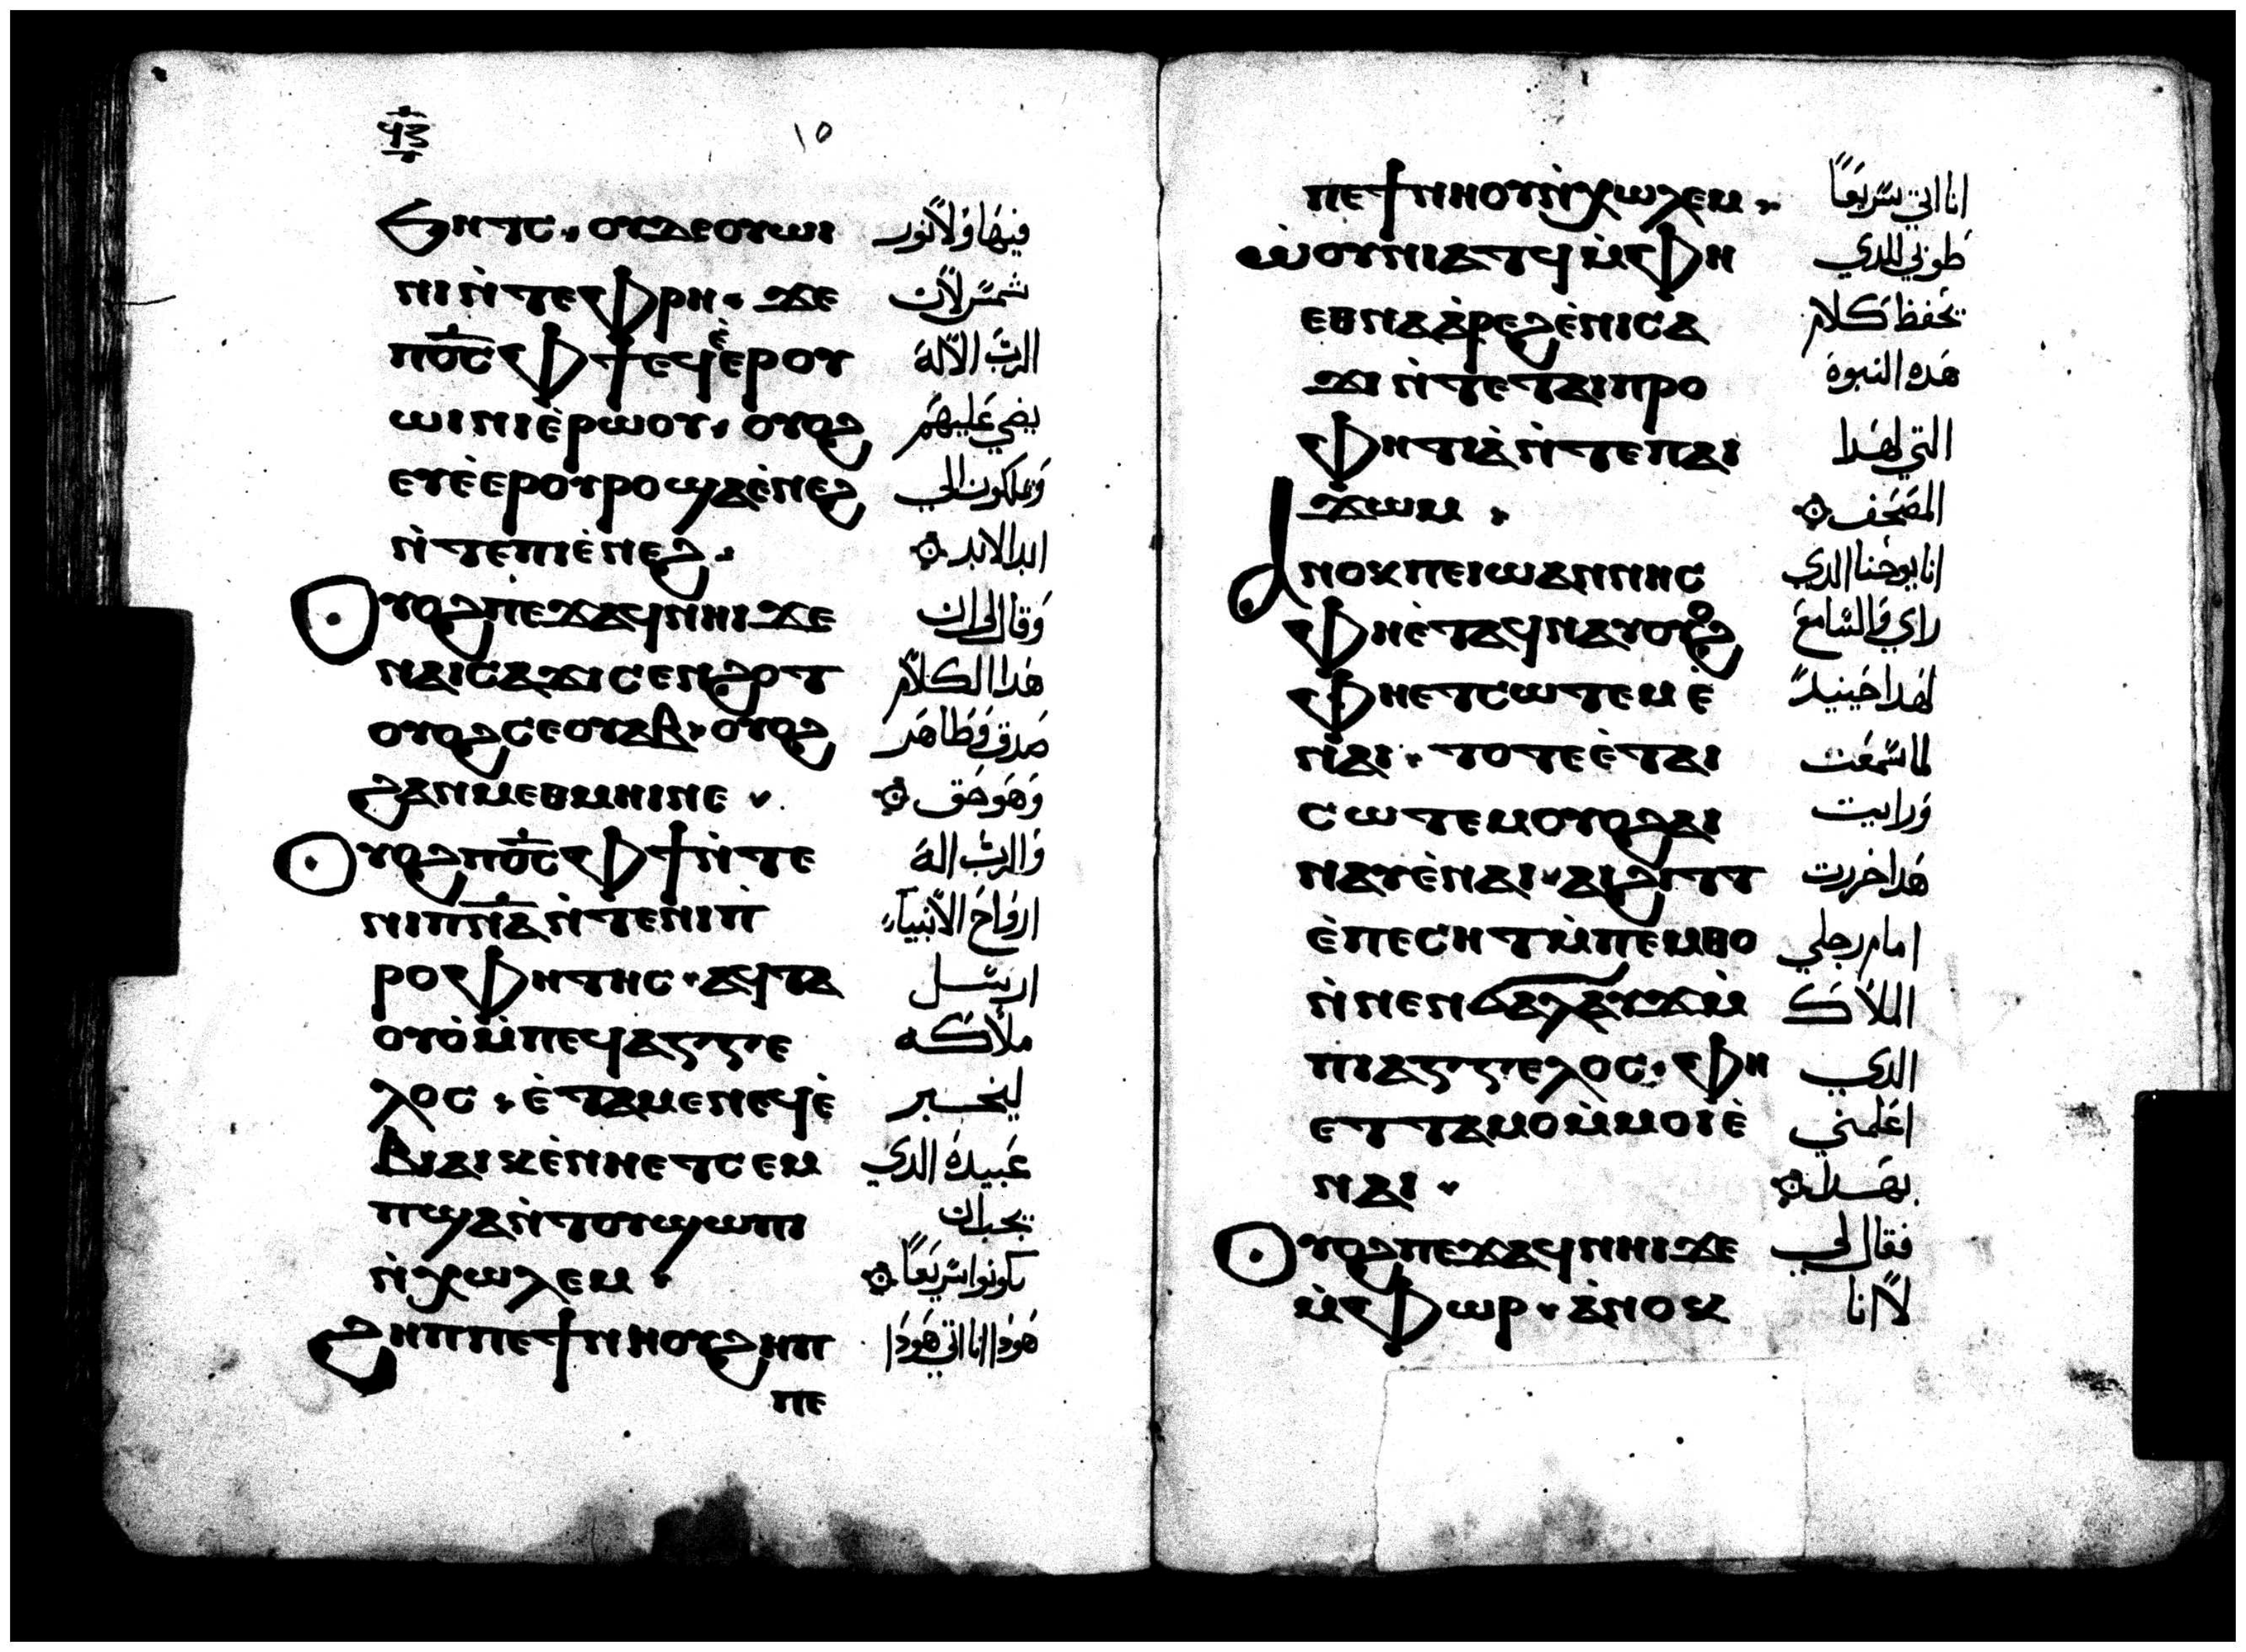 ϥⲍ
١٥
ϧⲏⲧⲥ. ⲟⲩⲇⲉⲟⲩⲱⲓ فيها ولا نور
ⲛⲓⲛ̀ⲧⲉⲫⲣⲏ. ϫⲉ شمس لان
ⲡⲟ̅ⲥ̅ⲫϯⲉϥⲉ̀ⲉⲣⲟⲩ الرب الاله
ⲱⲓⲛⲓⲉ̀ⲣⲱⲟⲩ. ⲟⲩⲟϩ يضي عليهم
ⲉⲩⲉ̀ⲉⲣⲟⲩⲣⲟϣⲁⲉ̀ⲛⲉϩ ويملكون الي
ⲛ̀ⲧⲉⲡⲓⲉ̀ⲛⲉϩ. ابد الابد
ⲟⲩⲟϩⲡⲉϫⲁϥⲛⲏⲓϫⲉ وقال لي ان
ⲛⲁⲓⲥⲁϫⲓⲥⲉⲛϩⲟⲧ هدا الكلام
ⲟⲩⲟϩⲥⲉⲟⲩⲁⲃ. ⲟⲩⲟϩ صدق وطاهر
ϩⲁⲛⲙⲉⲑⲙⲏⲓⲛⲉ. وهو حق
ⲟⲩⲟϩⲡⲟ̅ⲥ̅ⲫϯⲛ̀ⲧⲉ والرب اله
ⲛⲓⲡⲛ̅ⲁ̅ⲛ̀ⲧⲉⲛⲓⲡ̀ ارواح الانبياء
ⲣⲟⲫⲏⲧⲏⲥ. ⲁϥⲧⲁ ارسل
ⲟⲩⲟ̀ⲙ̀ⲡⲉϥⲁⲅⲅⲉ ملاكه
ⲗⲟⲥ. ⲉ̀ⲧⲁⲙⲉⲛⲉϥⲉ̀ ليخبر
ⲃⲓⲁⲓⲕⲉ̀ⲛⲏⲉⲧⲥⲉⲙ عبيده الدي
ⲡϣⲁⲛ̀ⲧⲟⲩϣⲱⲡⲓ يجب ان
ⲛ̀ⲭⲱⲗⲉⲙ. يكونوا سريعا
ϩⲏⲡⲡⲉϯⲛⲏⲟⲩϩⲏⲡ هودا انا اتي هودا
ⲡⲉ
ⲡⲉϯⲛⲏⲟⲩⲛ̀ⲭⲱⲗⲉⲙ. انا اتي سريعا
ⲱ̀ⲟⲩⲛⲓⲁⲧϥⲙ̀ⲫⲏ طوبي للدي
ⲉⲑⲛⲁⲁ̀ⲣⲉϩⲉ̀ⲛⲓⲥⲁ يحفظ كلام
ϫⲓⲛ̀ⲧⲉⲧⲁⲓⲡⲣⲟ هده النبوة
ⲫⲏⲧⲓⲁ̀ⲛ̀ⲧⲉⲡⲁⲓ التي لهدا
ϫⲱⲙ. المصحف
ⲁⲛⲟⲕⲡⲉⲓⲱⲁⲛⲛⲏⲥ انا يوحنا الدي
ⲫⲏⲉ̀ⲧⲁϥⲛⲁⲩⲟⲩⲟϩ راي والسامع
ⲫⲏⲉⲧⲥⲱⲧⲉⲙⲉ̀ لهدا حينيد
ⲛⲁⲓ. ⲧⲟⲧⲉⲉ̀ⲧⲁⲓ لما سمعت
ⲥⲱⲧⲉⲙⲟⲩⲟϩⲁⲓ ورايت
ⲛⲁⲩⲉ̀ⲛⲁⲓ. ⲁⲓϩⲓⲧⲧ هدا خررت
ⲉ̀ⲡⲉⲥⲏⲧⲙ̀ⲡⲉⲙⲑⲟ امام رجلي
ⲛ̀ⲛⲉⲛϭⲁⲗⲁⲩϫⲙ̀ الملاك
ⲡⲓⲁⲅⲅⲉⲗⲟⲥ. ⲫⲏ الدي
ⲉⲧⲧⲁⲙⲟⲙ̀ⲙⲟⲓⲉ̀ اعلمني
ⲛⲁⲓ. بهدا
ⲟⲩⲟϩⲡⲉϫⲁϥⲛⲏⲓϫⲉ فقال لي
ⲙ̀ⲫⲱⲣ. ⲁ̀ⲛⲟⲕ لا انا